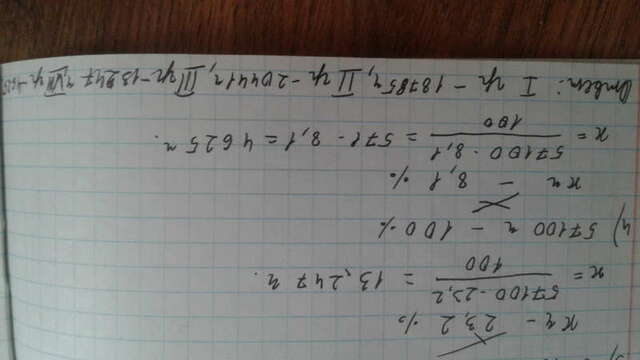 х ч - 23,2 %
х = 57100 · 23,2 / 100 = 13,247 ч.
4) 57100 ч - 100%
х ч - 8,1 %
х = 57100 · 8,1 / 100 = 571 · 8,1 = 4625 ч.
Ответ: I гр - 18785ч, II гр - 20441ч, III гр - 13247 ч, VII гр - 4625